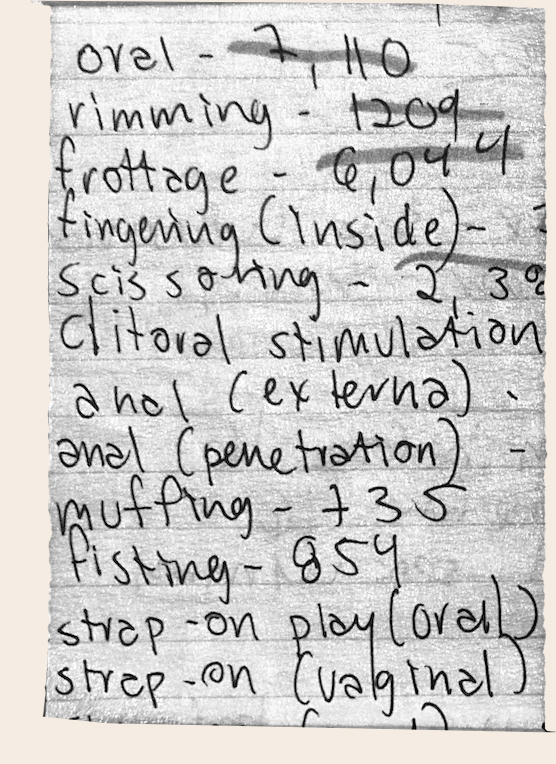 oral - 7,110
rimming - 1209
frottage - 6,044
fingering (inside) -
scissoring - 2,39
Clitoral stimulation
anal (externa)
anal (penetration) -
muffing - 735
fisting - 854
strap-on play (oral)
strap-on (valginal)